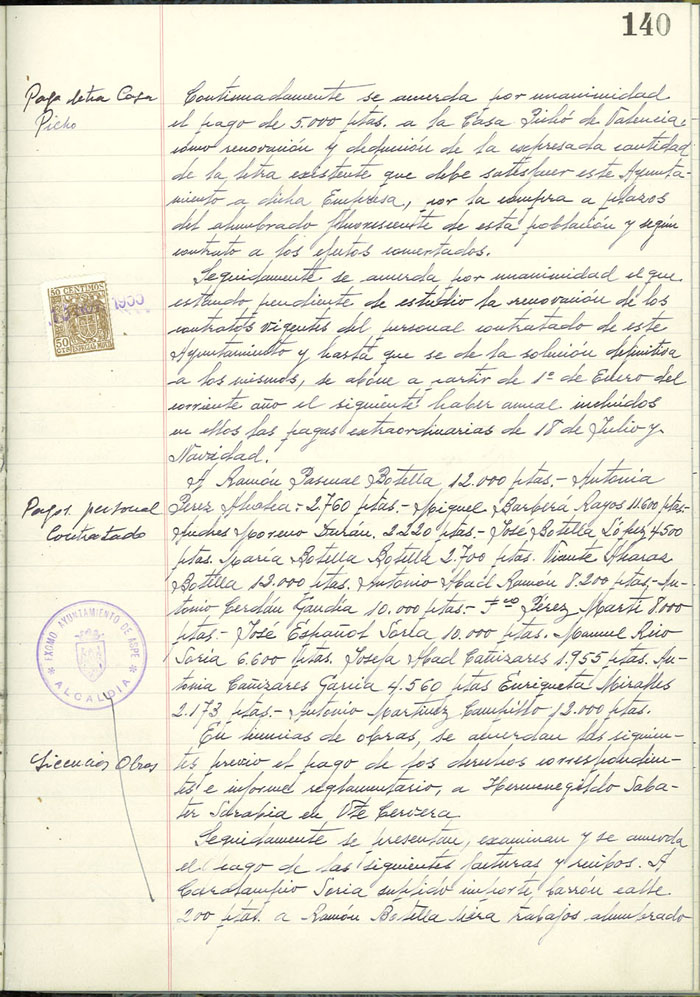 140
Paga letra Casa
Picho
Continuadamente se acuerda por unanimidad
el pago de 5.000 ptas. a la Casa Pichó de Valencia,
como renovación y deducción de la expresada cantidad
de la letra existente que debe satisfacer este Ayunta-
miento a dicha Empresa, por la compra a plazos
del alumbrado fluorescente de esta población y según
contrato a los efectos concertados.
Seguidamente se acuerda por unanimidad el que
estando pendiente de estudio la renovación de los
contratos vigentes del personal contratado de este
Ayuntamiento y hasta que se de la solución definitiva
a los mismos, se abone a partir de 1º de Enero del
corriente año el siguiente haber anual incluidos
en ellos las pagas extraordinarias de 18 de Julio y
Navidad.
50 CENTIMOS
50
CTS ESPECIAL MOVIL
Pagos. personal
Contratado
A Ramón Pascual Botella 12.000 ptas.- Antonia
Perez - 2.760 ptas.- Miguel Barberá Rayos 11.600 ptas.-
Andres Moreno Durán. 2.220 ptas.- José Botella López 4.500
ptas. María Botella Botella 2.700 ptas. Vicente
Botella 12.000 ptas. Antonio Abad Ramón 8.200 ptas.- An-
tonio Cerdán Gandía 10.000 ptas.- Fco Pérez Martí 8.000
ptas.- José Español Soria 10.000 ptas. Manuel Rico
Soria 6.600 Ptas. Josefa Abad Cañizares 1.955 ptas. An-
tonia Cañizares Garcia 4.560 ptas Enriqueta Miralles
2.173 ptas.- Antonio Martinez Campillo 12.000 ptas.
EXCMO. AYUNTAMIENTO DE ASPE
* ALCALDIA *
Licencias Obras
En licencias de obras, se acuerdan las siguien-
tes previo el pago de los derechos correspondien-
tes e informe reglamentario, a Hermenegildo Saba-
ter Sarabia en Vte Cervera
Seguidamente se presentan, examinan y se acuerda
el pago de las siguientes facturas y recibos. A
Caralampio Soria suplido importe calle
200 ptas. a Ramón Botella trabajos alumbrado